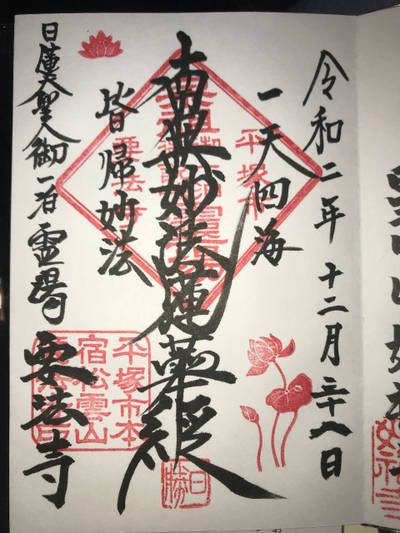 令和二年十二月二十八日
一天四海
南無妙法蓮華経
皆帰妙法
日蓮大聖人御一泊霊場
要法寺
平塚市
要法寺
平塚市本
宿松雲山
要法寺
日勝